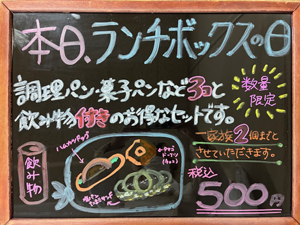 本日、ランチボックスの日
調理パン・菓子パンなど3コと
飲み物付きのお得なセットです。
数量
限定
一家族2個までと
させていただきます。
税込
500円
飲み物
ハムカツドッグ